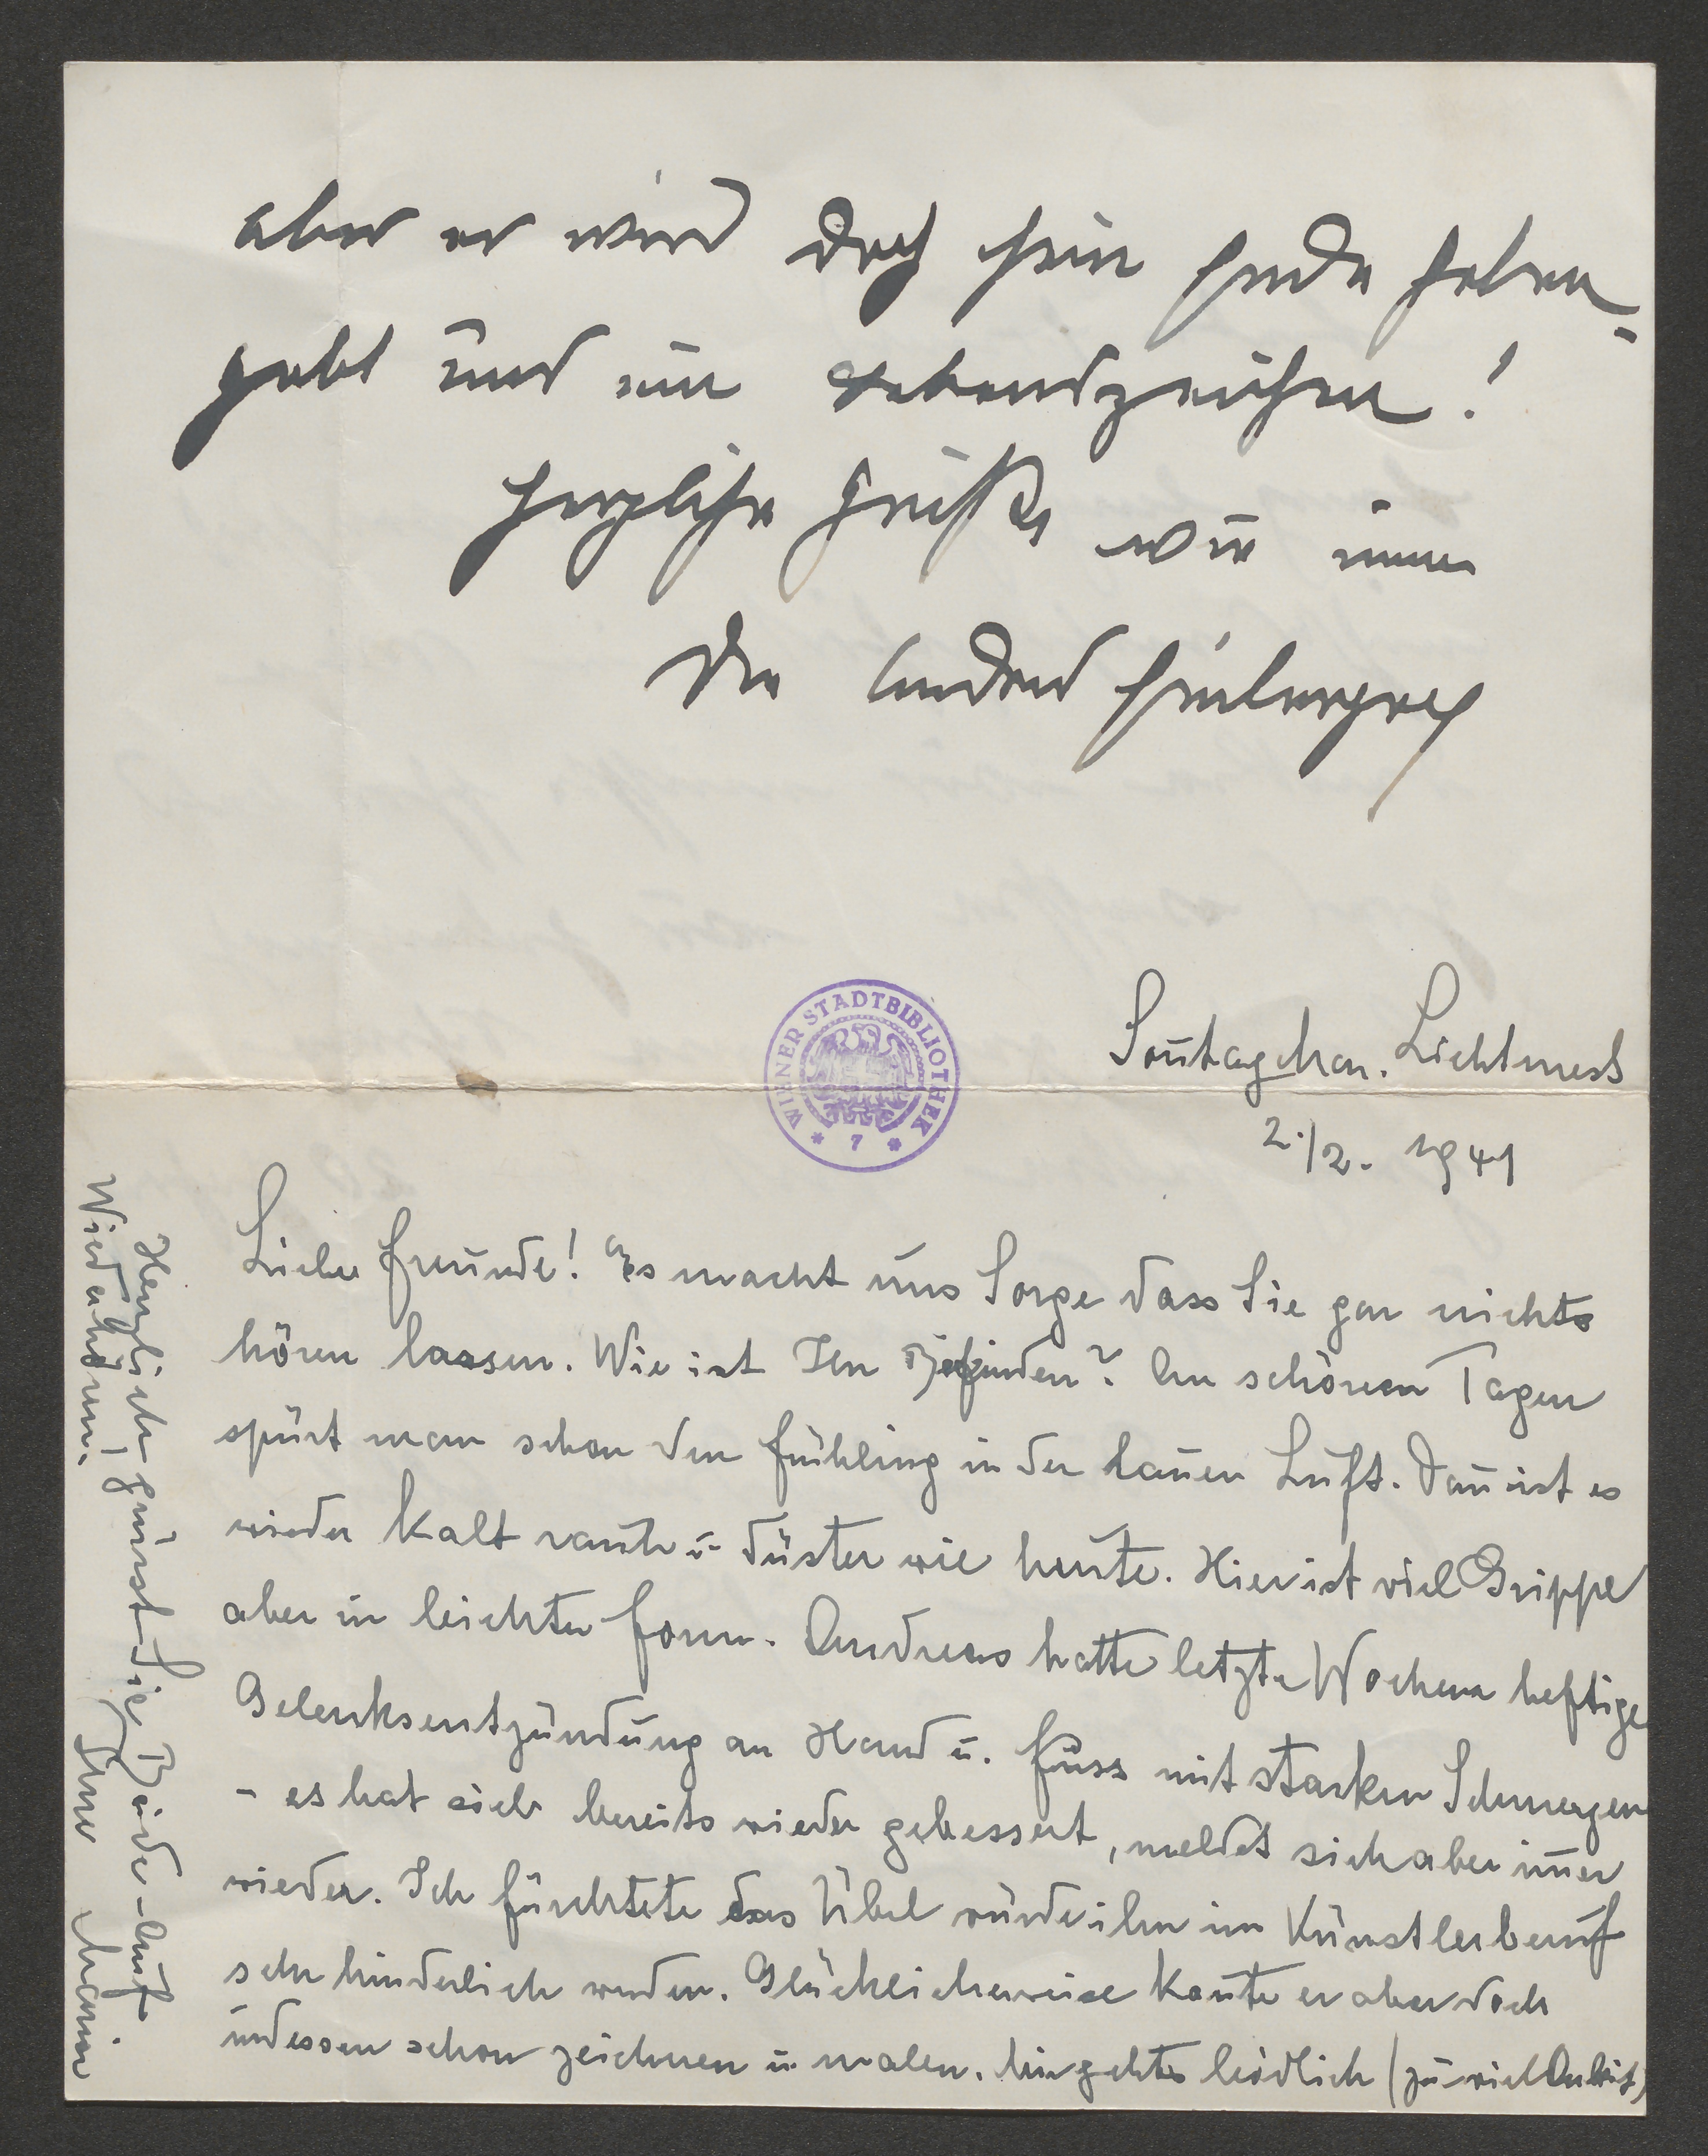 aber er wird doch seine Freude haben
gehabt und ein Lebenszeichen!
herzliche Grüße wie immer
der Andreas
WIENER STADTBIBLIOTHEK
* 7 *
Lichtmess
2./2. 1941
Liebe Freunde! Es macht uns Sorge dass Sie gar nichts
hören lassen. Wie ist Ihr Befinden? An schönen Tagen
spürt man schon den Frühling in der lauen Luft. Dan̄ ist es
wieder kalt rauh u. düster wie heute. Hier ist viel Grippe
aber in leichter Form. Andreas hatte letzte Wochen heftige
Gelenksentzündung an Hand u. Fuss mit starken Schmerzen
- es hat sich bereits wieder gebessert, meldet sich aber im̄er
wieder. Ich fürchtete das Übel würde ihm im Künstlerberuf
sehr hinderlich werden. Glücklicherweise kon̄te er aber doch
indessen schon zeichnen u. malen. Mir gehts leidlich (zu viel Arbeit)
Herzlich grüsst Sie Beide - Auf
Wiederhören! Ihre Maria